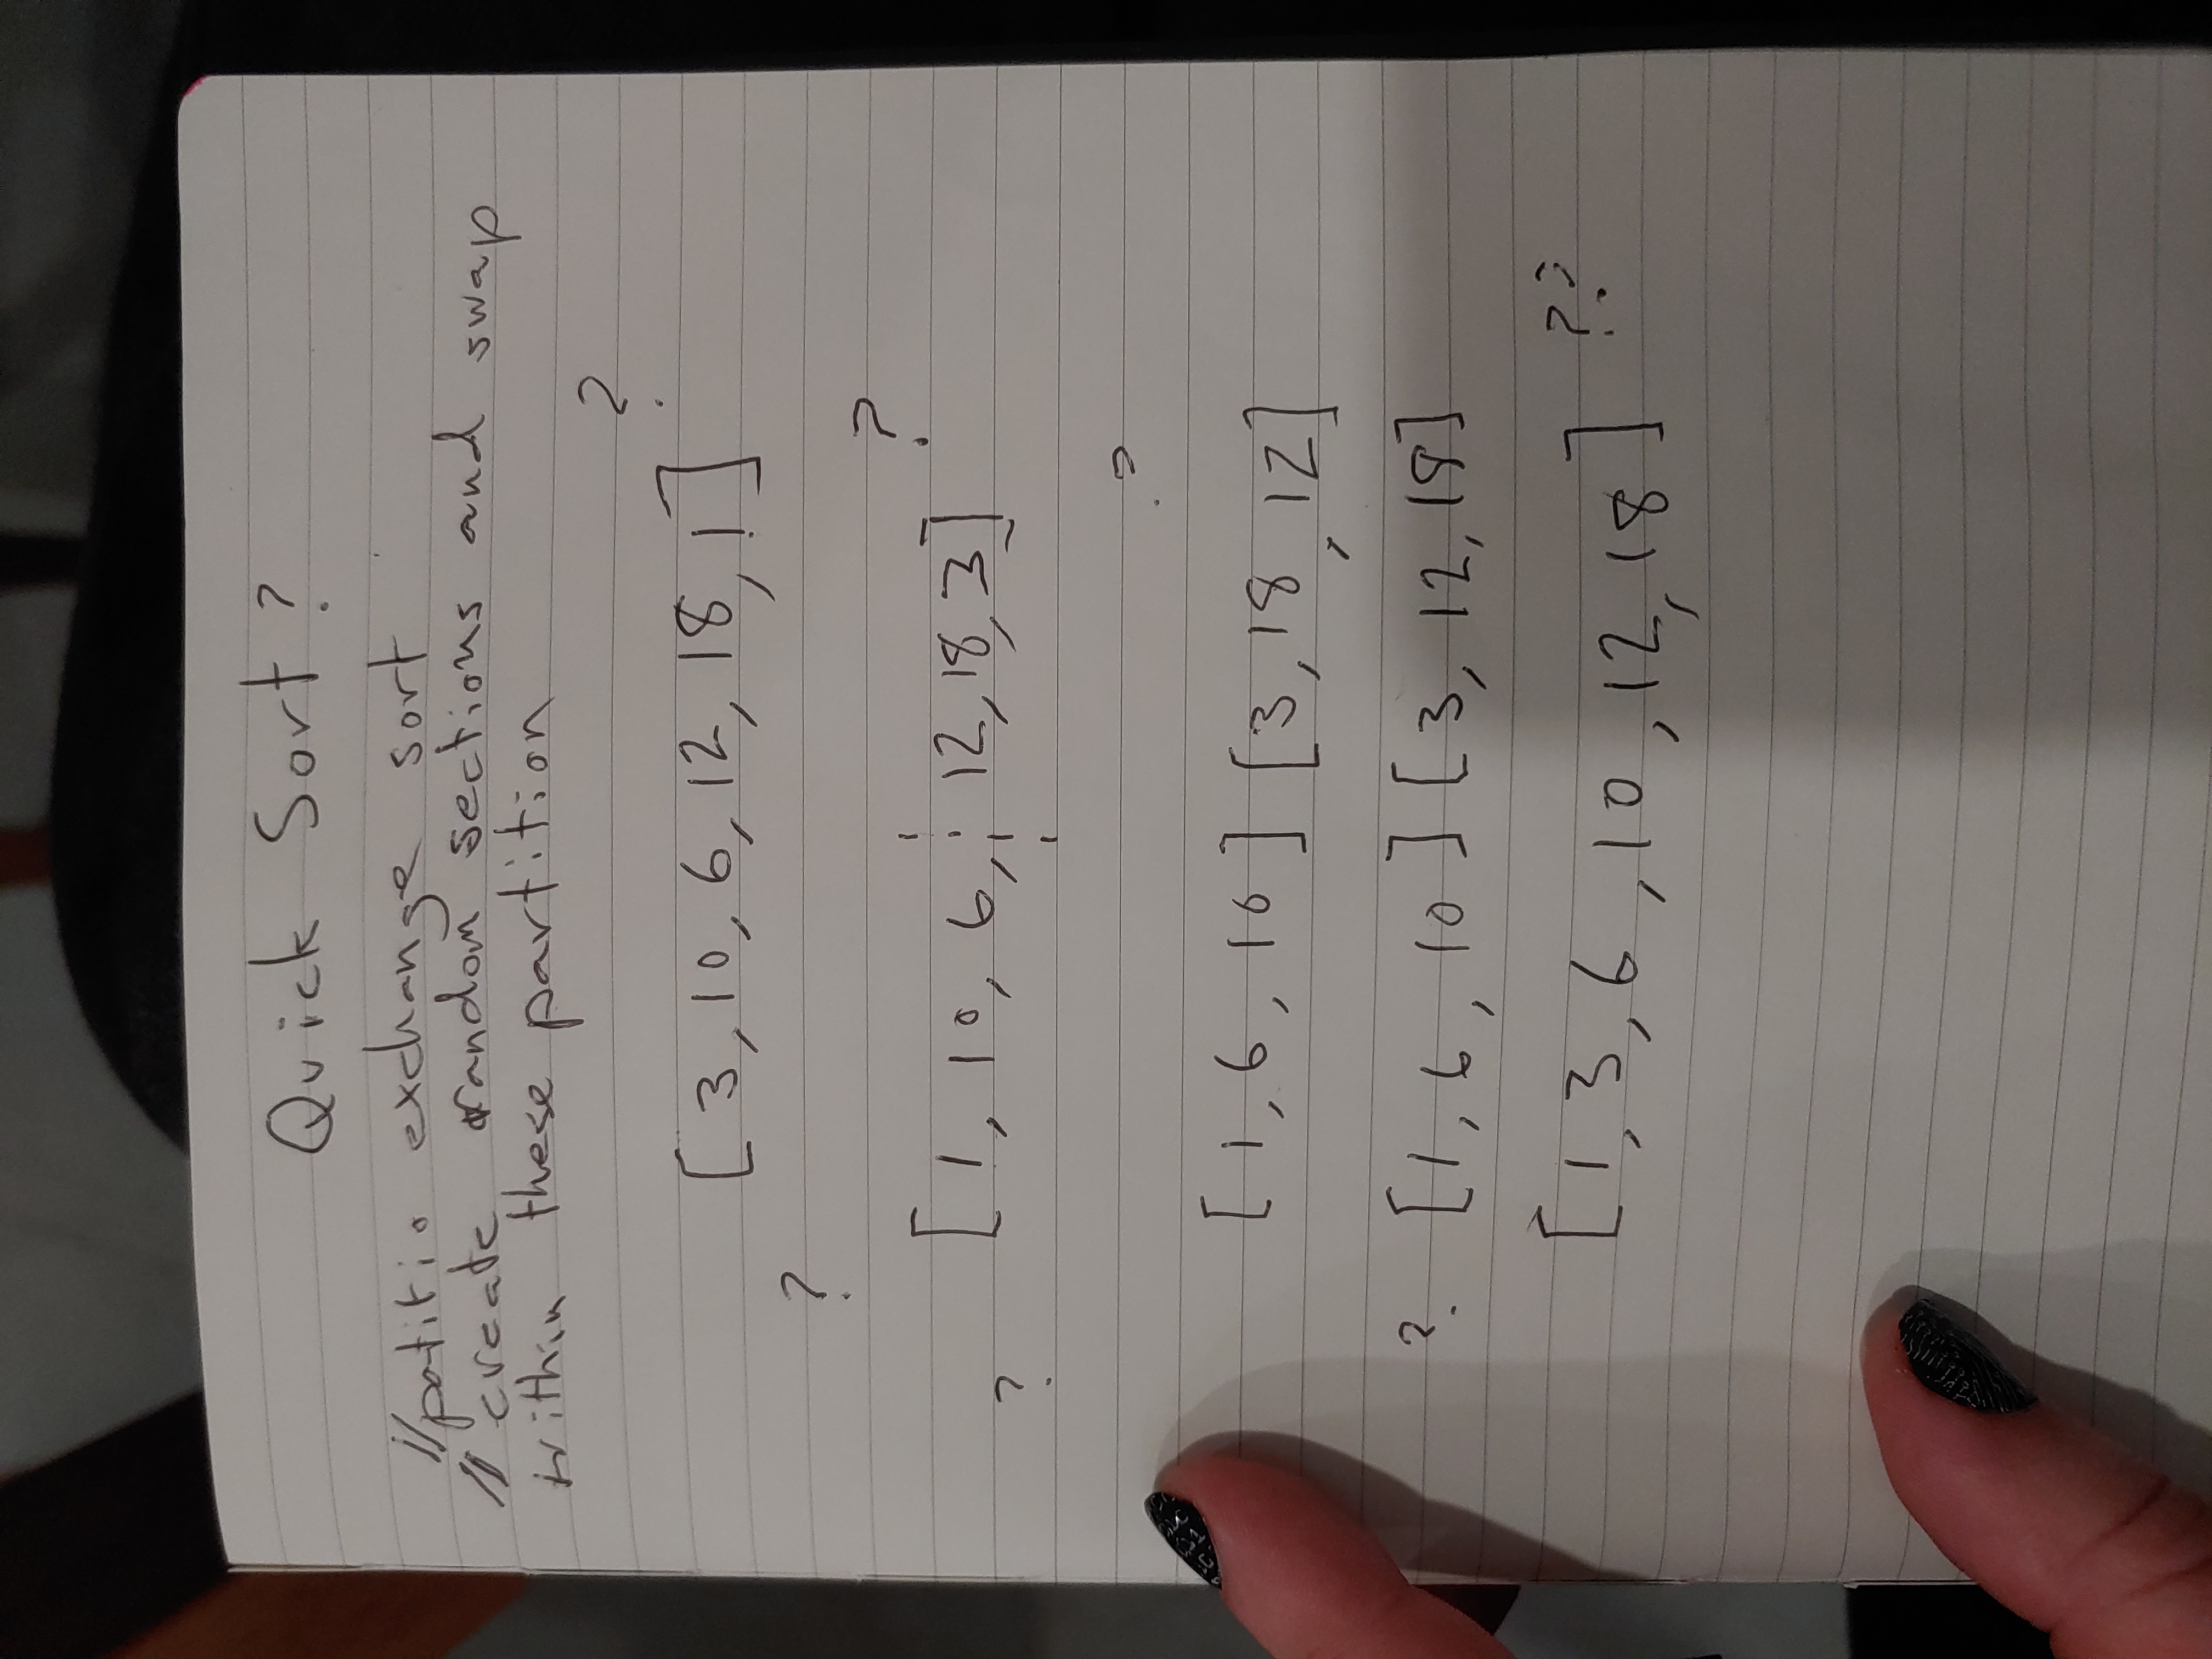 Quick Sort ?
//patitio exchange sort
// create random sections and swap
within these partition
?
[ 3, 10, 6, 12, 18, 1 ]
?
?
[ 1, 10, 6, ¦ 12, 18, 3 ]
?
?
[ 1, 6, 10 ] [ 3, 18, 12 ]
? [ 1, 6, 10 ] [ 3, 12, 18 ]
[ 1, 3, 6, 10, 12, 18 ] ??